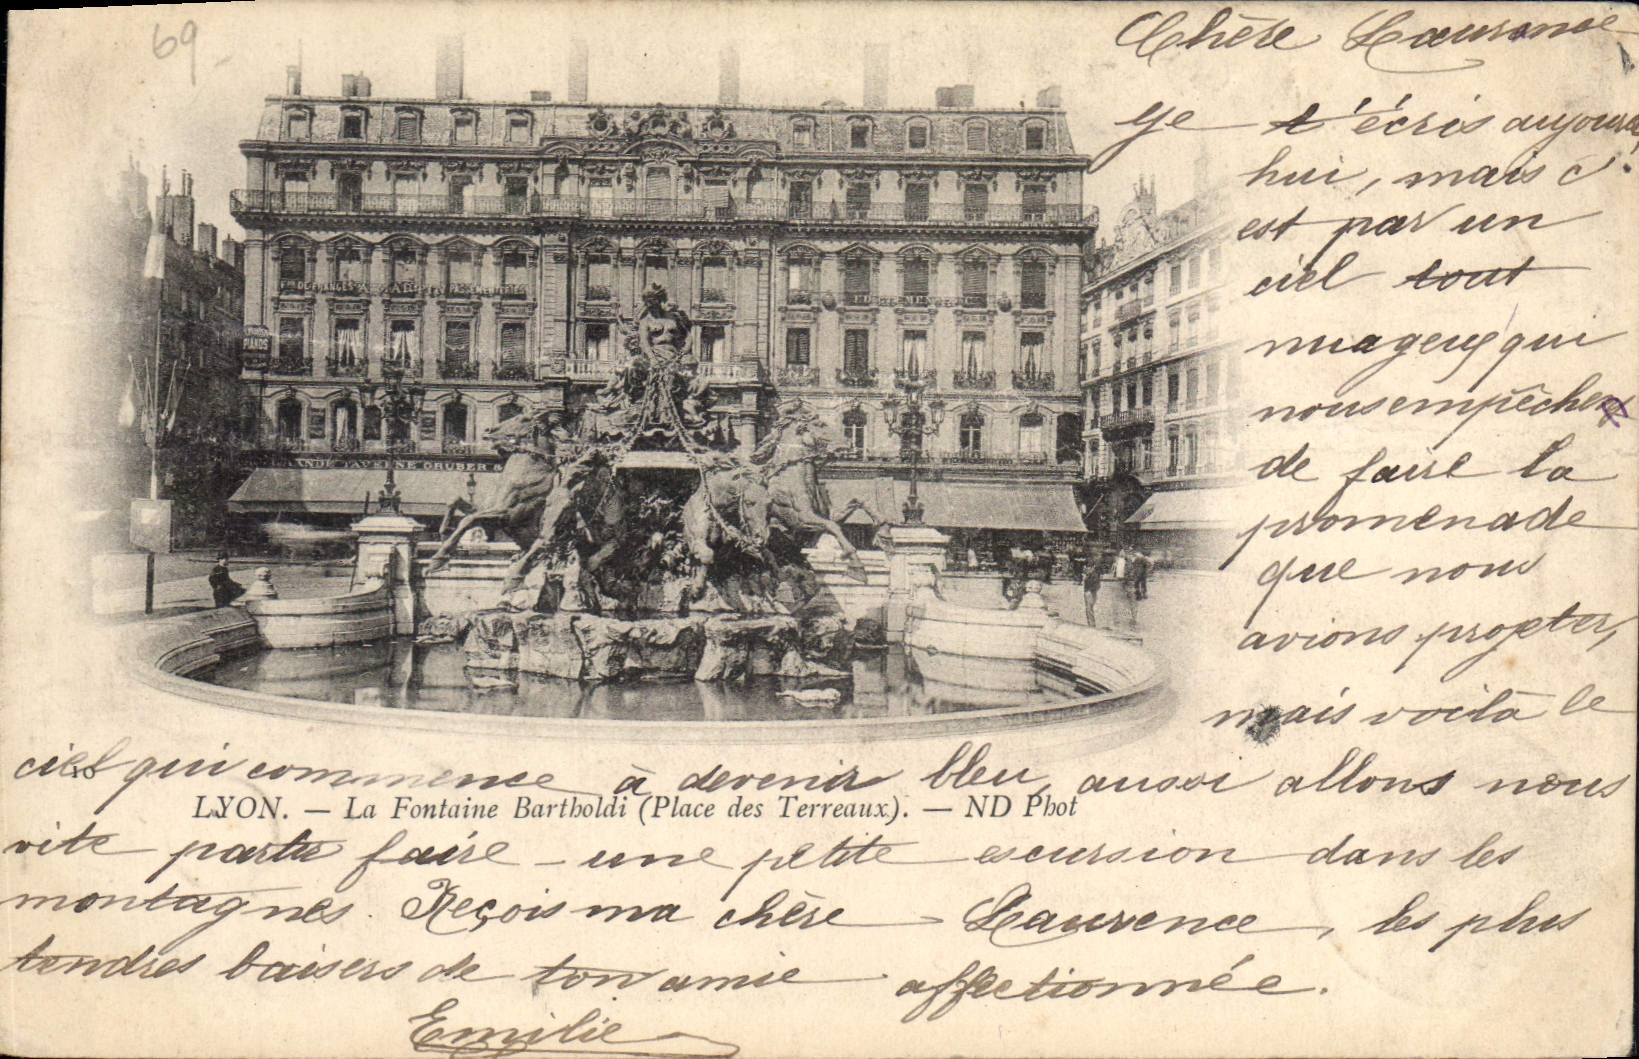 69
Chère Laurence
Je t'écris aujourd'
hui, mais c'
est par un
ciel tout
nuageux qui
nous empêchera
de faire la
promenade
que nous
avions projeter,
mais voilà le
ciel qui commence à devenir bleu, aussi allons nous
vite partir faire une petite escursion dans les
montagnes. Reçois ma chère Laurence, les plus
tendres baisers de ton amie affectionnée.
Emilie
PIANOS
TAVERNE GRUBER &
10
LYON. — La Fontaine Bartholdi (Place des Terreaux). — ND Phot